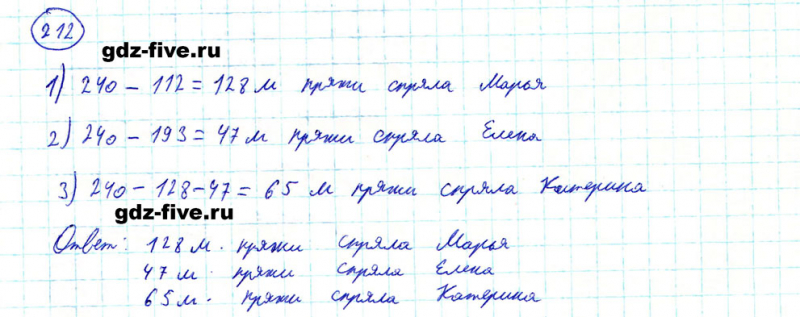 212
gdz-five.ru
1) 240 - 112 = 128 м пряжи спряла Марья
2) 240 - 193 = 47 м пряжи спряла Елена
3) 240 - 128 - 47 = 65 м пряжи спряла Катерина
gdz-five.ru
Ответ: 128 м. пряжи спряла Марья
47 м. пряжи спряла Елена
65 м. пряжи спряла Катерина